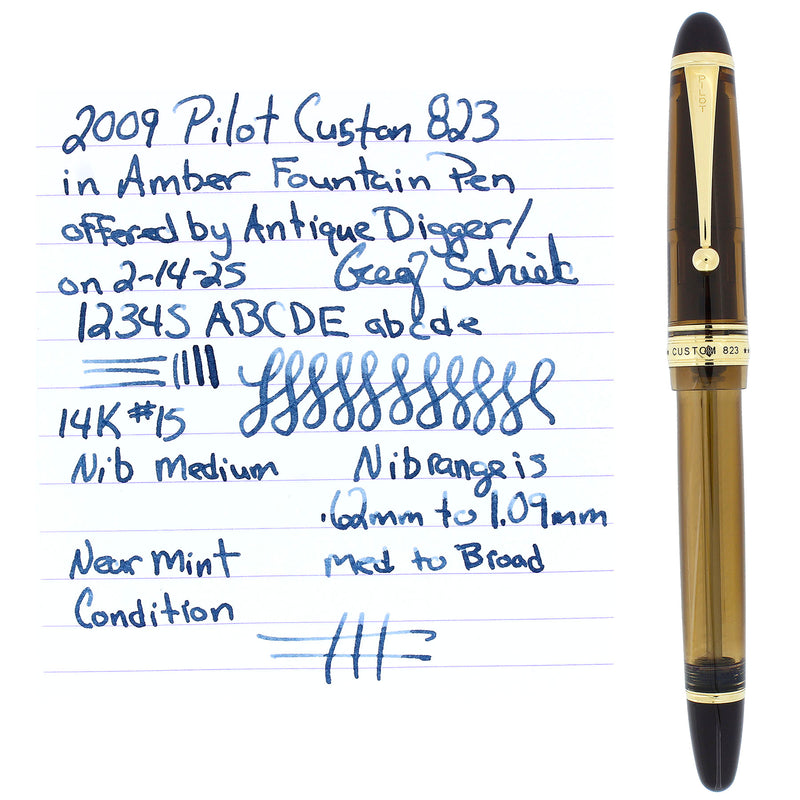 2009 Pilot Custom 823
in Amber Fountain Pen
offered by Antique Digger/
on 2-14-25 Greg
12345 ABCDE abcde
14K #15
Nib Medium
Nib range is
.62mm to 1.09mm
Med to Broad
Near Mint
Condition
PILOT
CUSTOM 823